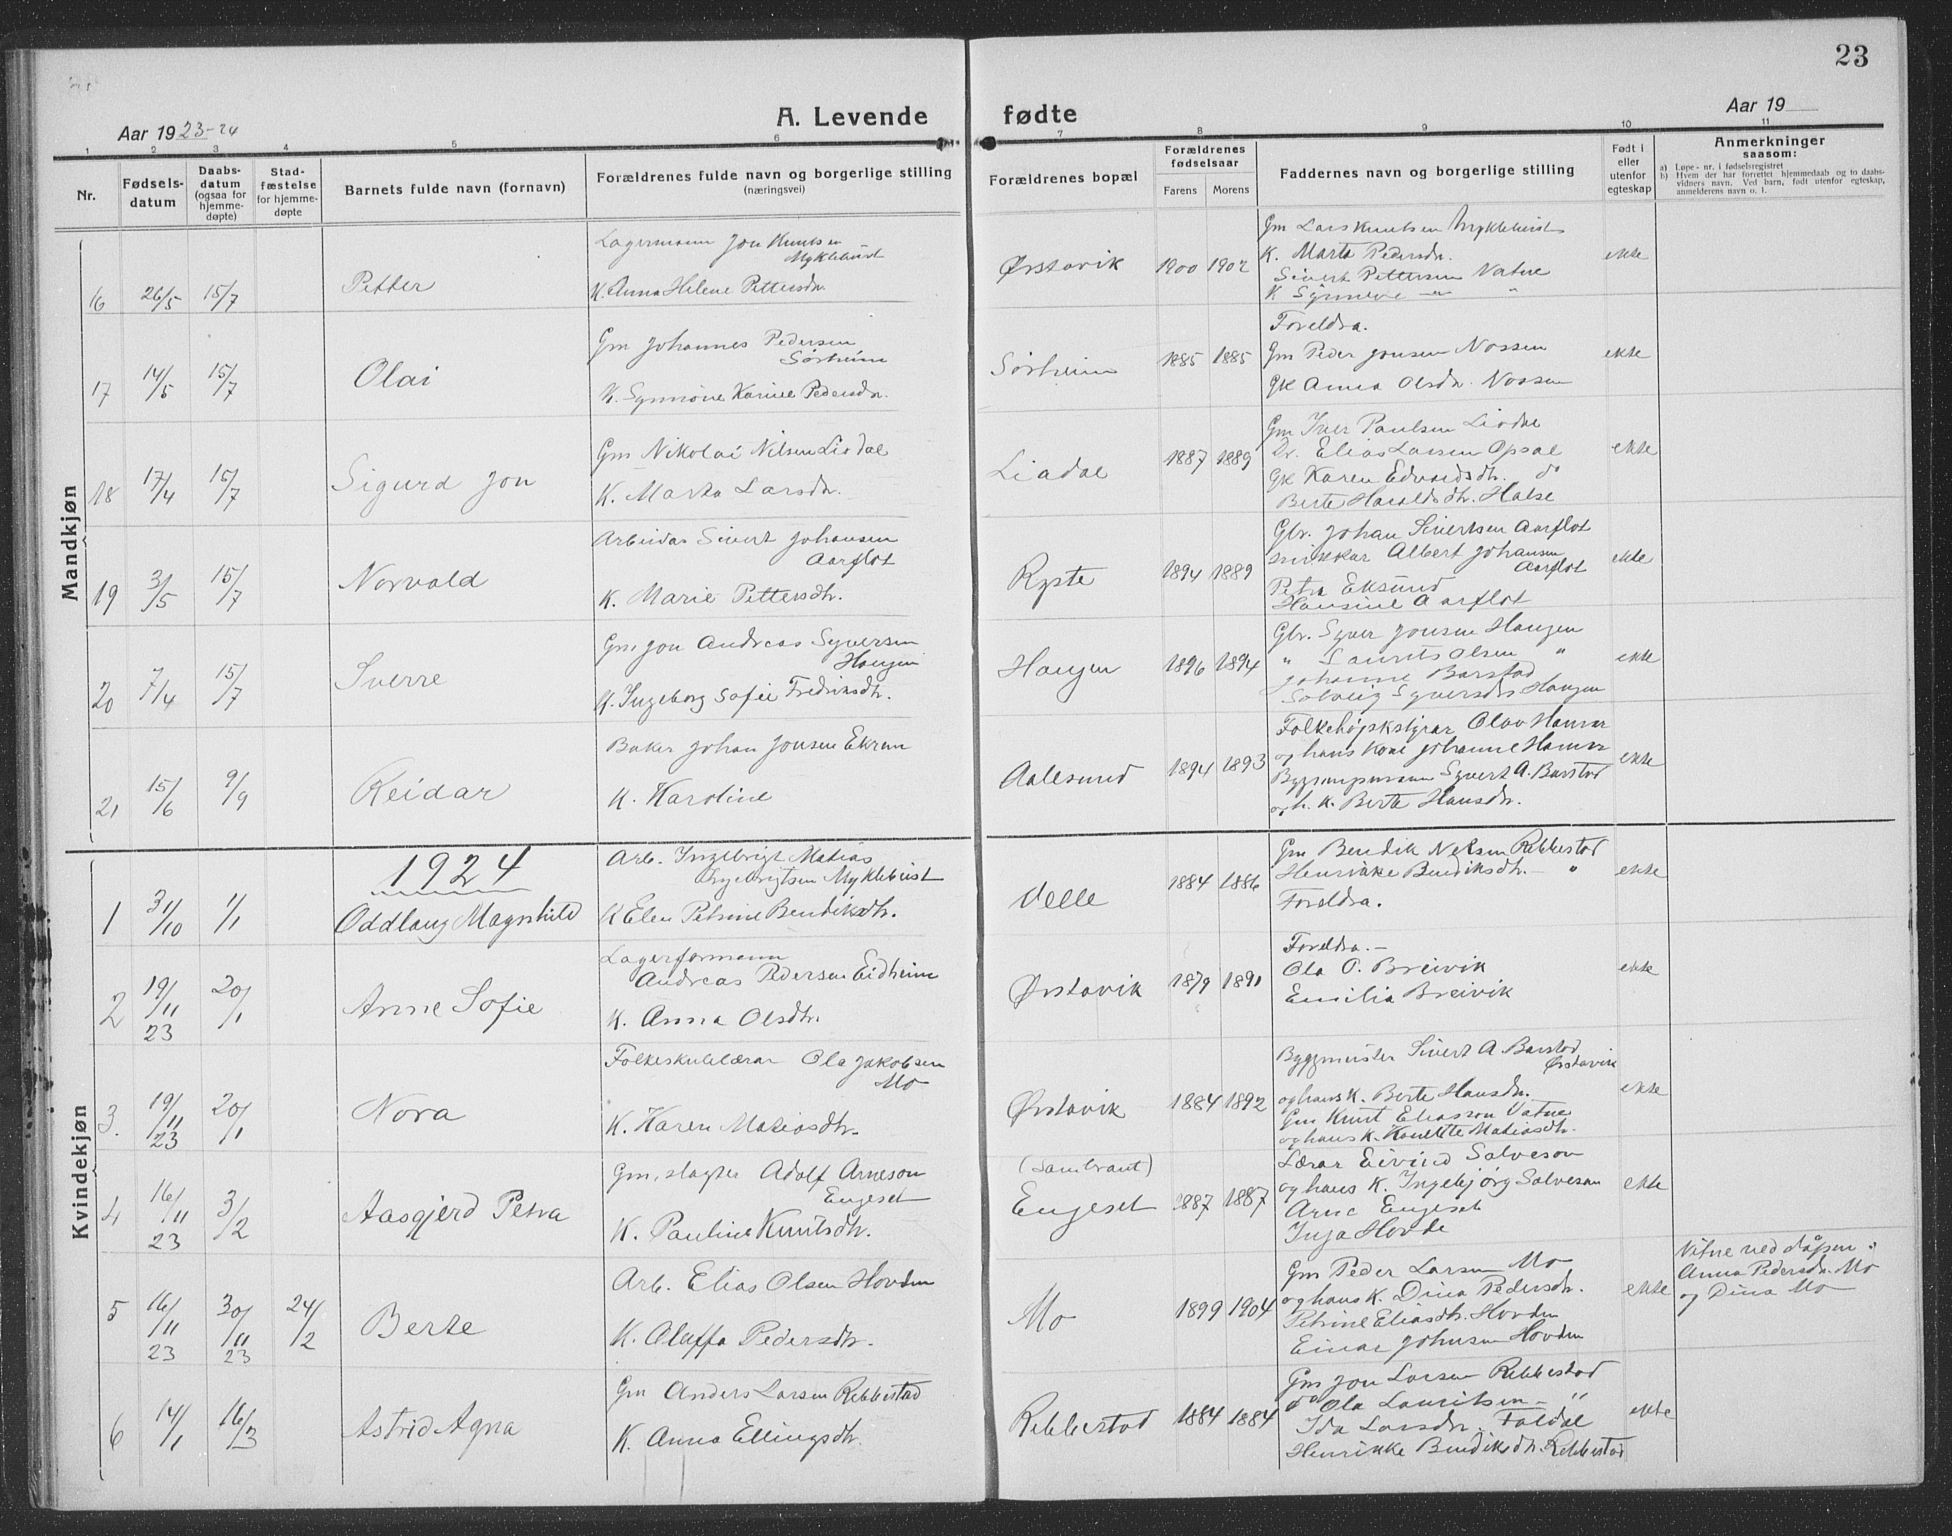 23
A. Levende fødte
Aar 1923-24
Aar 19
1 2 3 4 5 6 7 8 9 10 11
Nr.
Fødsels-
datum
Daabs-
datum
(ogsaa for
hjemme-
døpte)
Stad-
fæstelse
for hjemme-
døpte
Barnets fulde navn (fornavn)
Forældrenes fulde navn og borgerlige stilling
(næringsvei)
Forældrenes bopæl
Forældrenes
fødselsaar
Farens Morens
Faddernes navn og borgerlige stilling
Født i
eller
utenfor
egteskap
Anmerkninger
saasom:
a) Løpe-nr. i fødselsregistret
b) Hvem der har forrettet hjemmedaab og to daabs-
vidners navn. Ved barn, født utenfor egteskap,
anmelderens navn o. l.
Mandkjøn
16 26/5 15/7 Petter
Lagermann Jon Knutsen
Myklebust
K. Anna Helene Pettersdr.
Ørstavik 1900 1902
Gm Lars Knutsen Myklebust
K. Marta Pedersdr.
Sivert Pettersen Vatne
K Synneve — " "
ekte
17 14/5 15/7 Olai
Gm Johannes Pedersen
Sørheim
K. Synnøve Karine Pedersdr.
Sørheim 1885 1885
Foreldra.
Gm Peder Jonsen Nossen
Gk Anna Olsdr. Nossen
ekte
18 17/4 15/7 Sigurd Jon
Gm Nikolai Nilsen Liadal
K. Marta Larsdr.
Liadal 1887 1889
Gm Iver Paulsen Liadal
Dr. Elias Larsen Opsal
Gk Karen Edvardsdtr. do
Berte Haraldsdtr. Halse
ekte
19 3/5 15/7 Norvald
Arbeidar Sivert Johansen
Aarflot
K. Marie Pettersdtr.
Ryste 1894 1889
Gbr. Johan Sivertsen Aarflot
snikkar Albert Johansen
Aarflot
Petra Eksund
Hansine Aarflot
ekte
20 7/4 15/7 Sverre
Gm Jon Andreas Syversen
Haugen
K. Ingeborg Sofie Fredriksdtr.
Haugen 1896 1894
Gbr. Syver Jonsen Haugen
" Laurits Olsen "
Johanne Barstad
Solveig Syversdtr Haugen
ekte
21 15/6 9/9 Reidar
Baker Johan Jonsen Ekrem
K. Karoline
Aalesund 1894 1893
Folkehøgskstyrar Olav Hamar
og hans kone Johanne Hamar
Syvert A. Barstad
og h. k. Berte Hansdr.
ekte
Kvindekjøn
1924
1 31/10 1/1 Oddlaug Magnhild
Arb. Ingebrigt Matias
Ingebrigtsen Myklebust
K Elen Petrine Bendiksdtr.
Velle 1884 1886
Gm Bendik Nelsen Rebbestad
Henrikke Bendiksdtr. — "
Foreldra.
ekte
2 19/11 23 20/1 Anne Sofie
Lagerformann
Andreas Pedersen Eidheim
K. Anna Olsdtr.
Ørstavik 1879 1891
Foreldra. —
Ola O. Breivik
Emilia Breivik
ekte
3. 19/11 23 20/1 Nora
Folkeskulelærar Ola Jakobsen
Mo
K. Karen Matiasdtr.
Ørstavik 1884 1892
Byggmeister Sivert A. Barstad
Ørstavik
og hans K. Berte Hansdr.
Gm Knut Eliasson Vatne
og hans K. Matiasdtr.
ekte
4 16/11 23 3/2 Aasgjerd Petra
Gm, slagter Adolf Arneson
Engeset
K. Pauline Knutsdtr.
Engeset 1887 1887
Lærar Eivind Salveson
og hans K. Ingebjørg Salveson
Arne Engeset
Inga Hovde
ekte
5 16/11 23 30/11 23 24/2 Berte
Arb. Elias Olsen Hovden
K. Oluffa Pedersdtr.
Mo 1899 1904
Gm Peder Larsen Mo
og hans K. Dina Pedersdtr.
Petrine Eliasdtr. Hovden
Einar Johnsen Hovden
ekte
Vitne ved dåpen:
Anna Pedersdr. Mo
og Dina Mo
6 14/1 16/3 Astrid Agna
Gm Anders Larsen Rebbestad
K. Anna Ellingsdtr.
Rebbestad 1884 1884
Gm Jon Larsen Rebbestad
do Ola Lauritsen — "
Ida Larsdr. Foldal
Henrikke Bendiksdtr. Rebbestad
ekte